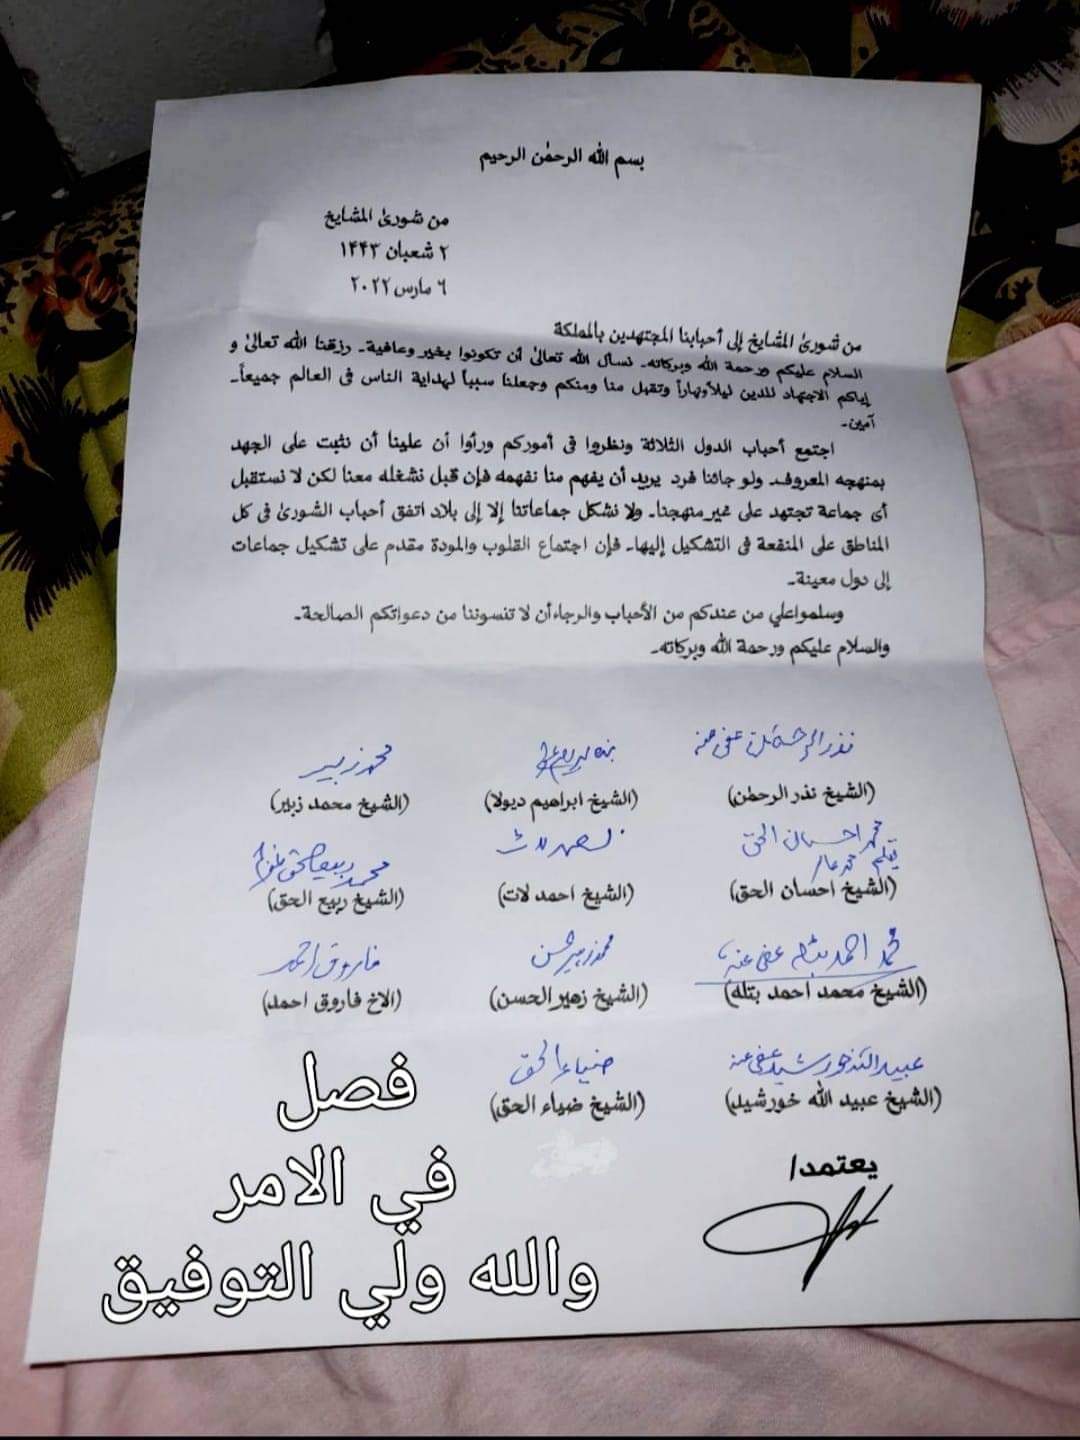 بسم الله الرحمٰن الرحيم
من شورىٰ المشايخ
٢ شعبان ١٤٤٣
٦ مارس ٢٠٢٢
من شورىٰ المشايخ إلى أحبابنا المجتهدين بالمملكة
السلام عليكم ورحمة الله وبركاته۔ نسأل الله تعالىٰ أن تكونوا بخير وعافية۔ رزقنا الله تعالىٰ و
إياكم الاجتهاد للدين ليلاًونهاراً وتقبل منا ومنكم وجعلنا سبباً لهداية الناس فى العالم جميعاً۔
آمين۔
اجتمع أحباب الدول الثلاثة ونظروا فى أموركم ورأوا أن علينا أن نثبت على الجهد
بمنهجه المعروف۔ ولو جائنا فرد يريد أن يفهم منا نفهمه فإن قبل نشغله معنا لكن لا نستقبل
أى جماعة تجتهد على غير منهجنا۔ ولا نشكل جماعاتنا إلا إلى بلاد اتفق أحباب الشورىٰ فى كل
المناطق على المنفعة فى التشكيل إليها۔ فإن اجتماع القلوب والمودة مقدم على تشكيل جماعات
إلى دول معينة۔
وسلمواعلي من عندكم من الأحباب والرجاءأن لا تنسوننا من دعواتكم الصالحة۔
والسلام عليكم ورحمة الله وبركاته۔
نذر الرحمٰن عفى عنه محمد زبير
(الشيخ نذر الرحمٰن) (الشيخ ابراهيم ديولا) (الشيخ محمد زبير)
محمد احسان الحق
بقلم محمد عامر
(الشيخ احسان الحق) (الشيخ احمد لات) (الشيخ ربيع الحق)
محمد احمد بٹلہ عفى عنه فاروق احمد
(الشيخ محمد احمد بتله) (الشيخ زهير الحسن) (الاخ فاروق احمد)
عبيد الله خورشيد عفى عنه ضياء الحق
(الشيخ عبيد الله خورشيد) (الشيخ ضياء الحق)
يعتمد/
فصل
في الامر
والله ولي التوفيق